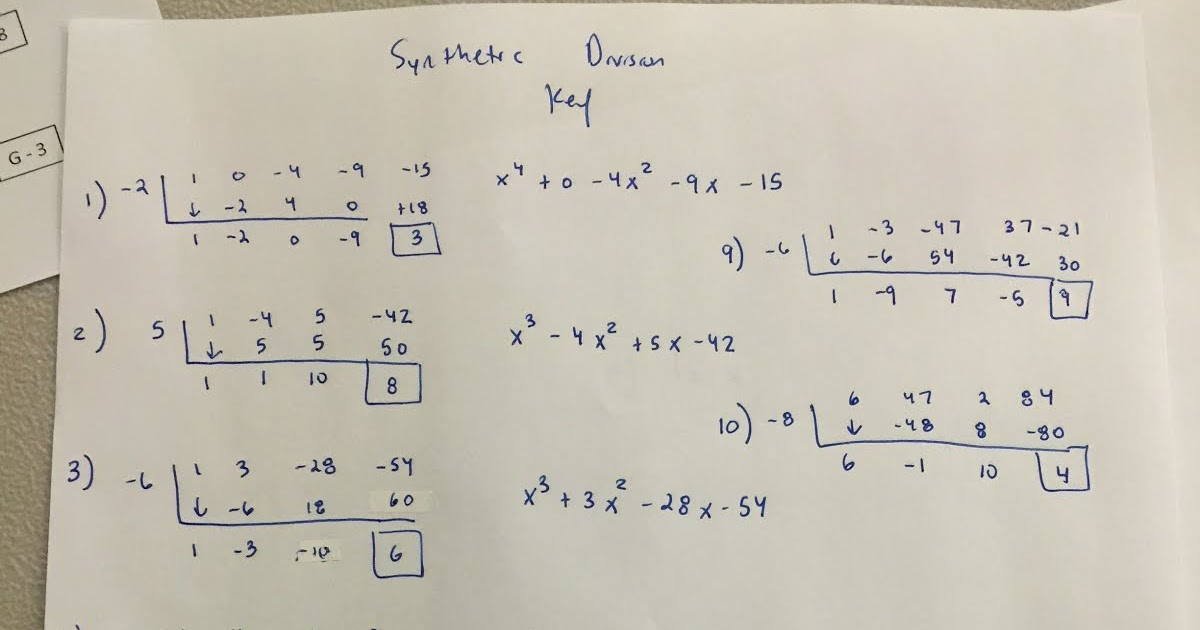 8
G-3
Synthetic Divison
Key
1) -2 | 1 0 -4 -9 -15
↓ -2 4 0 +18
1 -2 0 -9 3
x⁴ + 0 - 4x² - 9x - 15
2) 5 | 1 -4 5 -42
↓ 5 5 50
1 1 10 8
x³ - 4x² + 5x - 42
3) -6 | 1 3 -28 -54
↓ -6 18 60
1 -3 -10 6
x³ + 3x² - 28x - 54
9) -6 | 1 -3 -47 37 -21
↓ -6 54 -42 30
1 -9 7 -5 9
10) -8 | 6 47 2 84
↓ -48 8 -80
6 -1 10 4